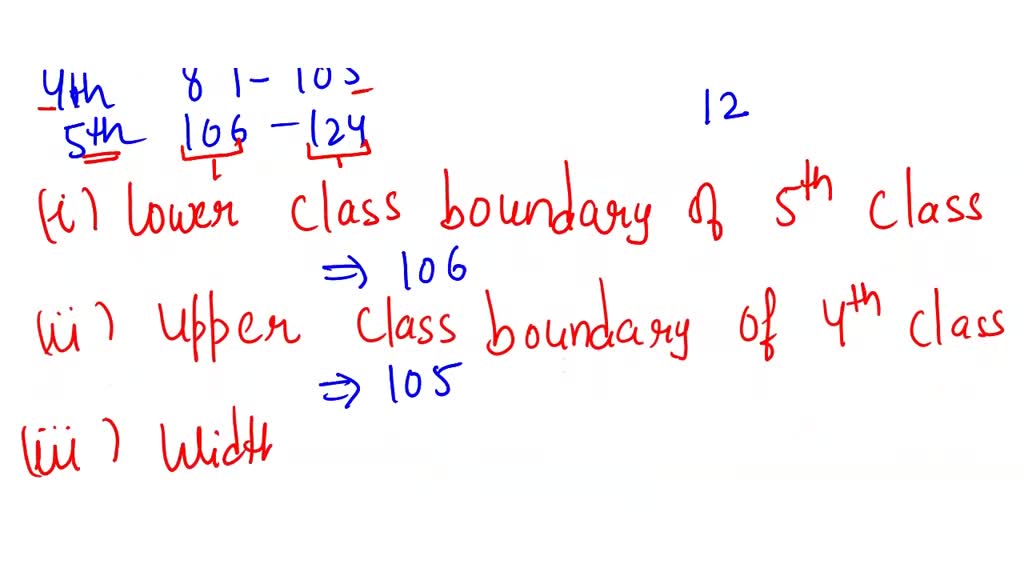 4th 81 - 105
5th 106 - 124
12
(i) Lower class boundary of 5th class
⇒ 106
(ii) Upper class boundary of 4th class
⇒ 105
(iii) Width